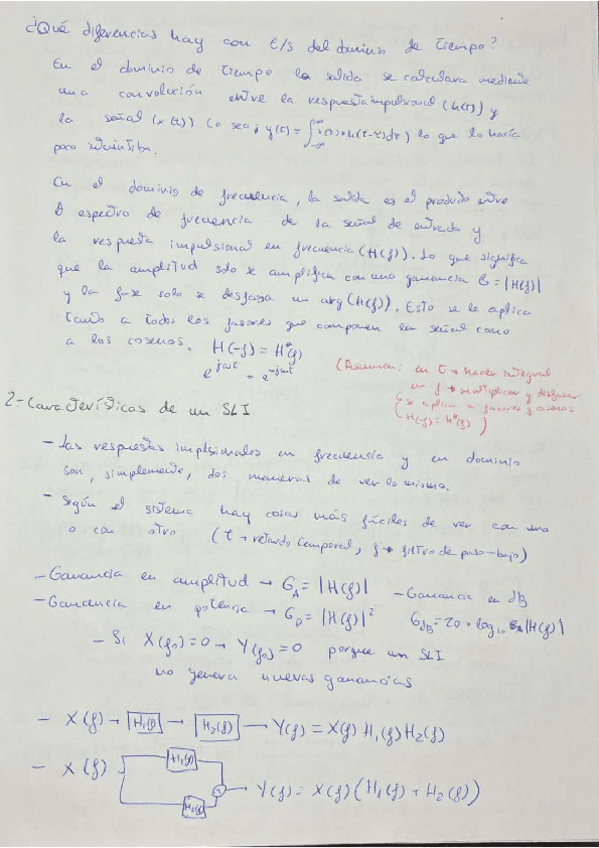 ¿Qué diferencias hay con E/S del dominio de tiempo?
En el dominio de tiempo la salida se calculara mediente
una convolución entre la respuesta impulsional (h(t)) y
la señal (x(t)) (o sea; y(t) = ∫ x(τ)·h(t-τ)dτ) lo que lo hacía
poco intuitiba.
En el dominio de frecuencia, la salida es el produto entre
el espectro de frecuencia de la señal de entrada y
la respuesta impulsional en frecuencia (H(f)). Lo que significa
que la amplitud solo se amplifica con una ganancia G = |H(f)|
y la fase solo se desfasa un arg(H(f)). Esto se le aplica
tanto a todos los fasores que componen la señal como
a los cosenos. H(-f) = H*(f)
(Resumen: en t → hacer integral
en f → multiplicar y desfasar
G se aplica a fasores y cosenos
(H(-f) = H*(f))
2- Características de un SLI
- Las respuestas implsionales en frecuencia y en dominio
son, simplemente, dos maneras de ver lo mismo.
- Según el sistema hay cosas más fáciles de ver con uno
o con otro (t → retardo temporal, f → filtro de paso-bajo)
- Ganancia en amplitud → G_A = |H(f)| - Ganancia en dB
- Ganancia en potencia → G_P = |H(f)|² G_dB = 20·log₁₀ |H(f)|
- Si X(f₀) = 0 → Y(f₀) = 0 porque un SLI
no genera nuevas ganancias
- X(f) → H₁(f) → H₂(f) → Y(f) = X(f) H₁(f) H₂(f)
H₁(f)
- X(f) + → Y(f) = X(f) (H₁(f) + H₂(f))
H₂(f)